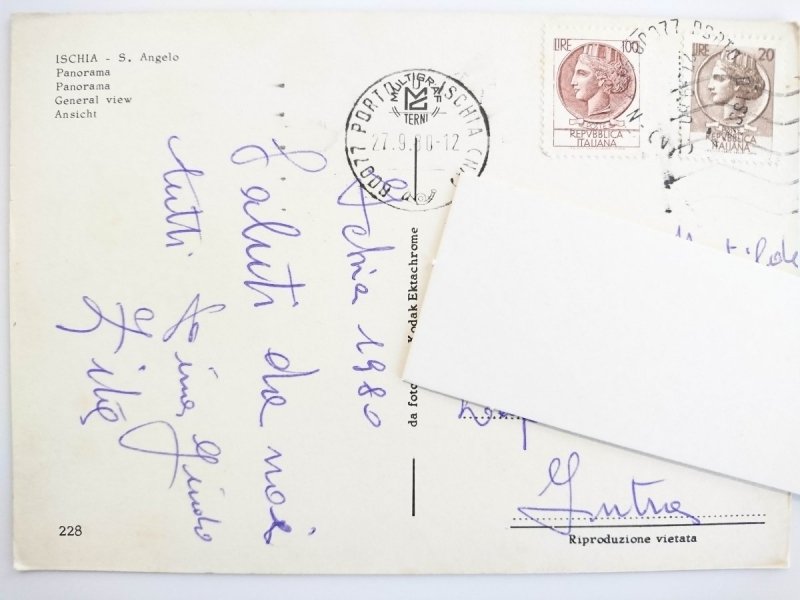 ISCHIA - S. Angelo
Panorama
Panorama
General view
Ansicht
LIRE 100
REPVBBLICA
ITALIANA
LIRE 20
REPVBBLICA
ITALIANA
80077 PORTO D'ISCHIA (NA)
MULTIGRAF
TERNI
27.9.80-12
80077 PORTO D'ISCHIA
Ischia 1980
Saluti da noi
tutti
Gino
228
da foto Kodak Ektachrome
Intra
Riproduzione vietata